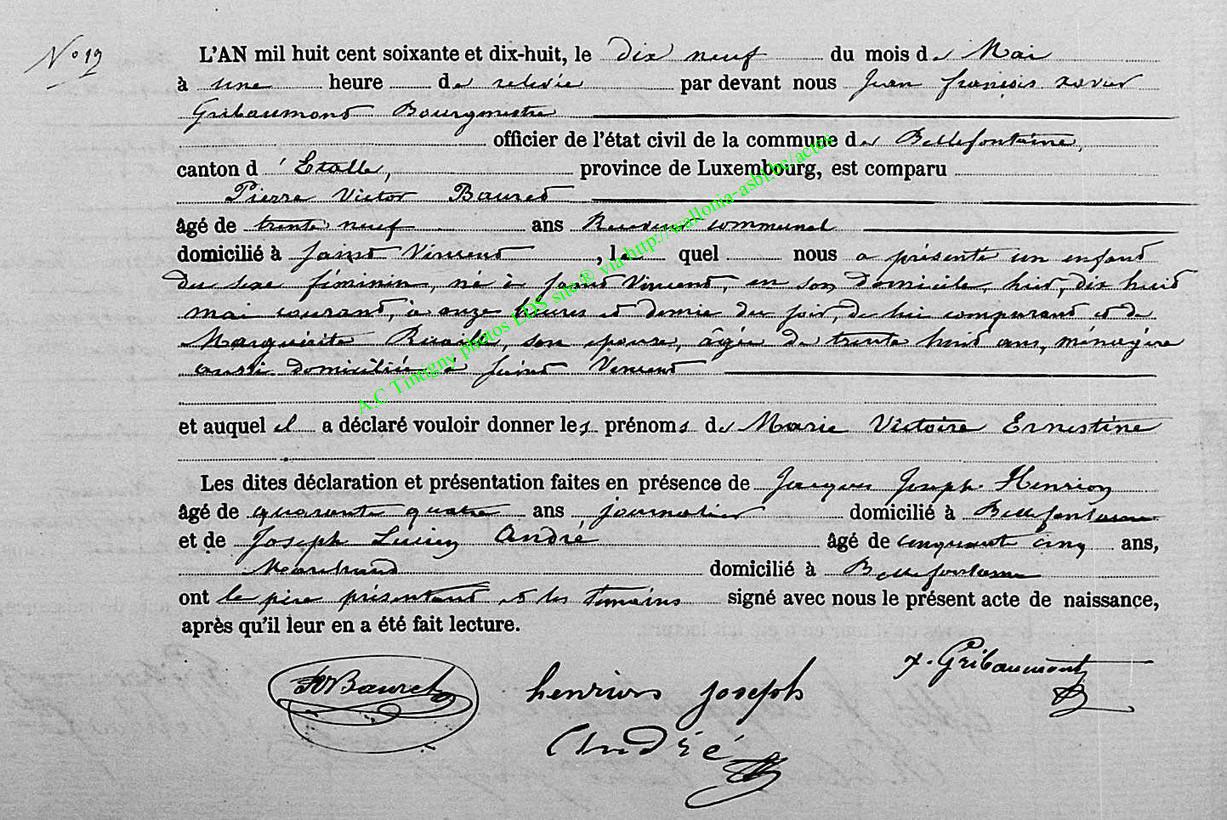 N° 12
L'AN mil huit cent soixante et dix-huit, le dix neuf du mois de Mai
à une heure de relevée par devant nous Jean françois xavier
Gribaumont Bourgmestre
officier de l'état civil de la commune de Bellefontaine,
canton d'Etalle, province de Luxembourg, est comparu
Pierre Victor Bauret
âgé de trente neuf ans Receveur communal
domicilié à Saint Vincent, lequel nous a présenté un enfant
du sexe féminin, né à Saint Vincent, en son domicile hier, dix huit
mai courant, à onze heures et demie du soir, de lui comparant et de
Marguerite, son épouse, âgée de trente huit ans, ménagère
aussi domiciliée à Saint Vincent
et auquel il a déclaré vouloir donner les prénoms de Marie Victoire Ernestine
Les dites déclaration et présentation faites en présence de Jacques Joseph Henrion
âgé de quarante quatre ans journalier domicilié à Bellefontaine
et de Joseph Lucien André âgé de cinquante cinq ans,
Marchand domicilié à Bellefontaine
ont le père présentant et les témoins signé avec nous le présent acte de naissance,
après qu'il leur en a été fait lecture.
Bauret henrion joseph x. Gribaumont
André
A.C Tintigny photos LDS site® via http://wallonia-asbl.be/actes